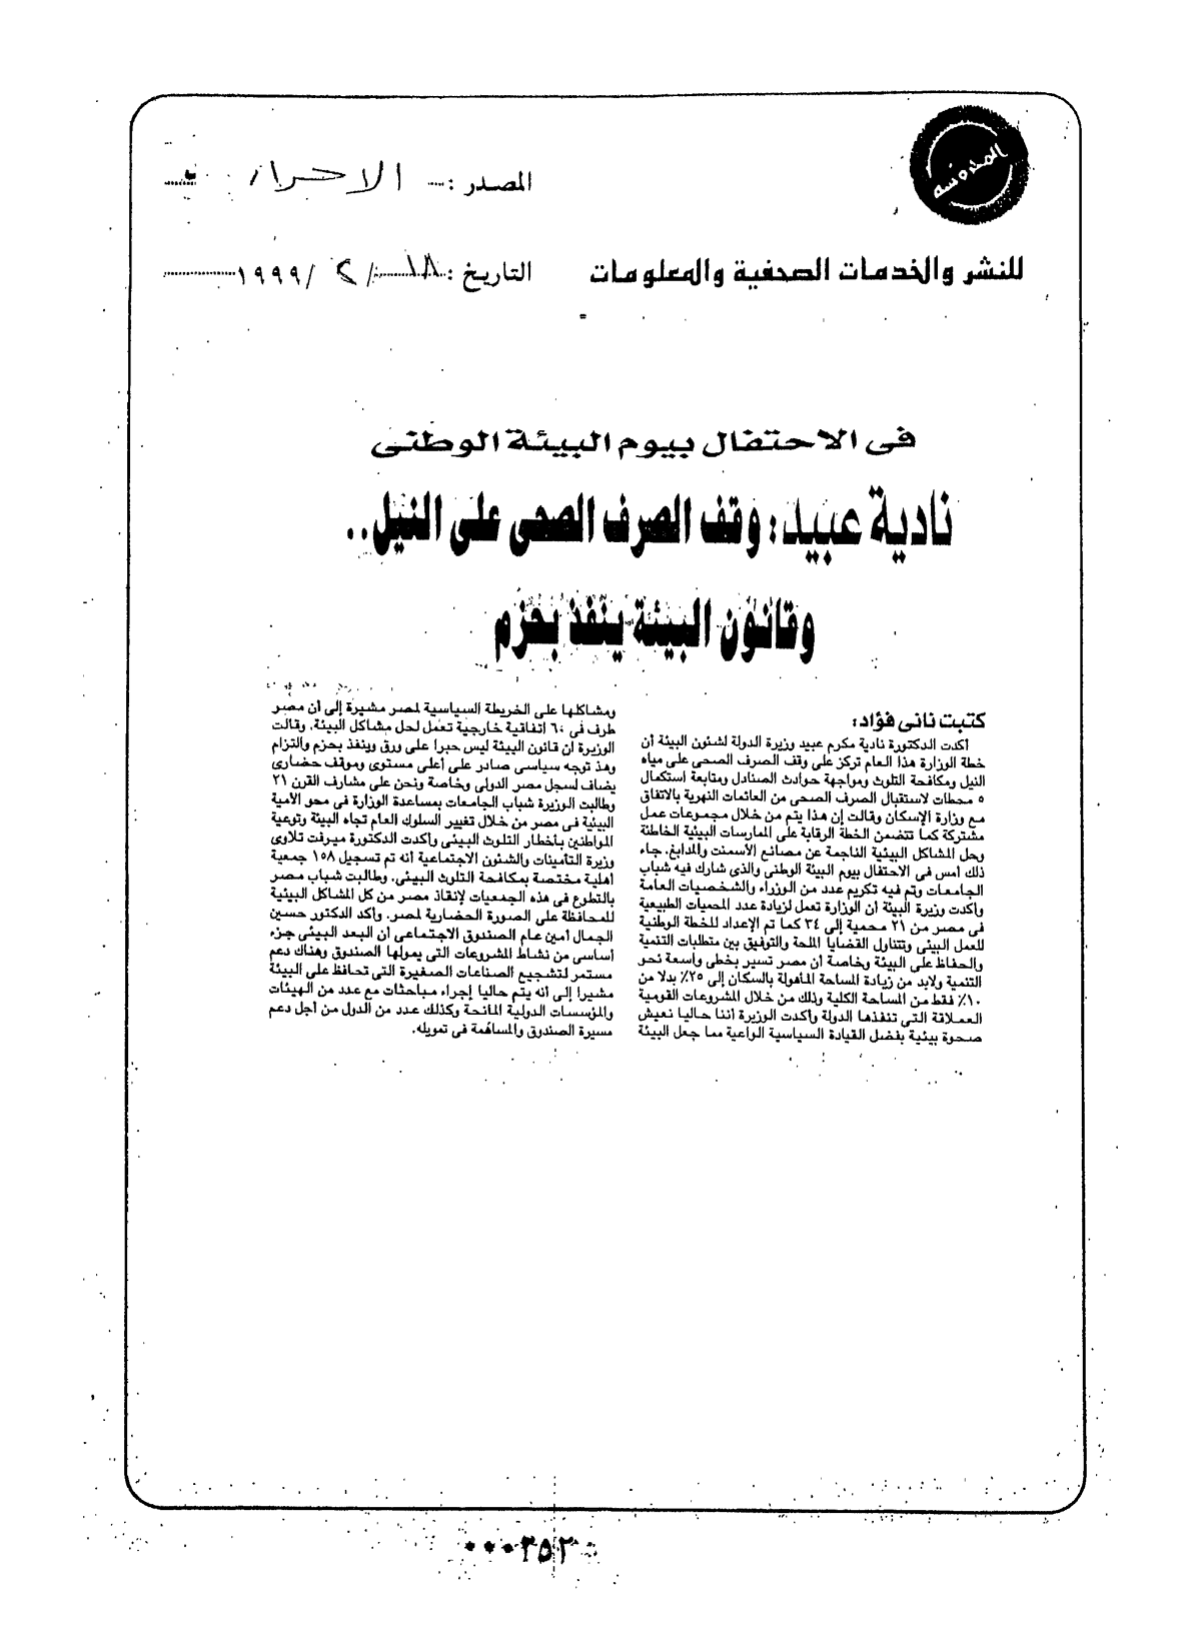 المحروسة
المصدر: الاحرار
للنشر والخدمات الصحفية والمعلومات
التاريخ: ١٨ / ٢ / ١٩٩٩
فى الاحتفال بيوم البيئة الوطنى
نادية عبيد: وقف الصرف الصحى على النيل..
وقانون البيئة ينفذ بحزم
كتبت نانى فؤاد:
أكدت الدكتورة نادية مكرم عبيد وزيرة الدولة لشئون البيئة أن
خطة الوزارة هذا العام تركز على وقف الصرف الصحى على مياه
النيل ومكافحة التلوث ومواجهة حوادث الصنادل ومتابعة استكمال
٥ محطات لاستقبال الصرف الصحى من العائمات النهرية بالاتفاق
مع وزارة الإسكان وقالت إن هذا يتم من خلال مجموعات عمل
مشتركة كما تتضمن الخطة الرقابة على الممارسات البيئية الخاطئة
وحل المشاكل البيئية الناجمة عن مصانع الأسمنت والمدابغ. جاء
ذلك أمس فى الاحتفال بيوم البيئة الوطنى والذى شارك فيه شباب
الجامعات وتم فيه تكريم عدد من الوزراء والشخصيات العامة
وأكدت وزيرة البيئة أن الوزارة تعمل لزيادة عدد المحميات الطبيعية
فى مصر من ٢١ محمية إلى ٣٤ كما تم الإعداد للخطة الوطنية
للعمل البيئى وتتناول القضايا الملحة والتوفيق بين متطلبات التنمية
والحفاظ على البيئة وخاصة أن مصر تسير بخطى واسعة نحو
التنمية ولابد من زيادة المساحة المأهولة بالسكان إلى ٢٥٪ بدلا من
١٠٪ فقط من المساحة الكلية وذلك من خلال المشروعات القومية
العملاقة التى تنفذها الدولة وأكدت الوزيرة أننا حاليا نعيش
صحوة بيئية بفضل القيادة السياسية الواعية مما جعل البيئة
ومشاكلها على الخريطة السياسية لمصر مشيرة إلى أن مصر
طرف فى ٦٠ اتفاقية خارجية تعمل لحل مشاكل البيئة. وقالت
الوزيرة ان قانون البيئة ليس حبرا على ورق وينفذ بحزم والتزام
وهذ توجه سياسى صادر على أعلى مستوى وموقف حضارى
يضاف لسجل مصر الدولى وخاصة ونحن على مشارف القرن ٢١
وطالبت الوزيرة شباب الجامعات بمساعدة الوزارة فى محو الأمية
البيئية فى مصر من خلال تغيير السلوك العام تجاه البيئة وتوعية
المواطنين بأخطار التلوث البيئى وأكدت الدكتورة ميرفت تلاوى
وزيرة التأمينات والشئون الاجتماعية أنه تم تسجيل ١٥٨ جمعية
أهلية مختصة بمكافحة التلوث البيئى. وطالبت شباب مصر
بالتطوع فى هذه الجمعيات لإنقاذ مصر من كل المشاكل البيئية
للمحافظة على الصورة الحضارية لمصر. وأكد الدكتور حسين
الجمال أمين عام الصندوق الاجتماعى أن البعد البيئى جزء
أساسى من نشاط المشروعات التى يمولها الصندوق وهناك دعم
مستمر لتشجيع الصناعات الصغيرة التى تحافظ على البيئة
مشيرا إلى أنه يتم حاليا إجراء مباحثات مع عدد من الهيئات
والمؤسسات الدولية المانحة وكذلك عدد من الدول من أجل دعم
مسيرة الصندوق والمساهمة فى تمويله.